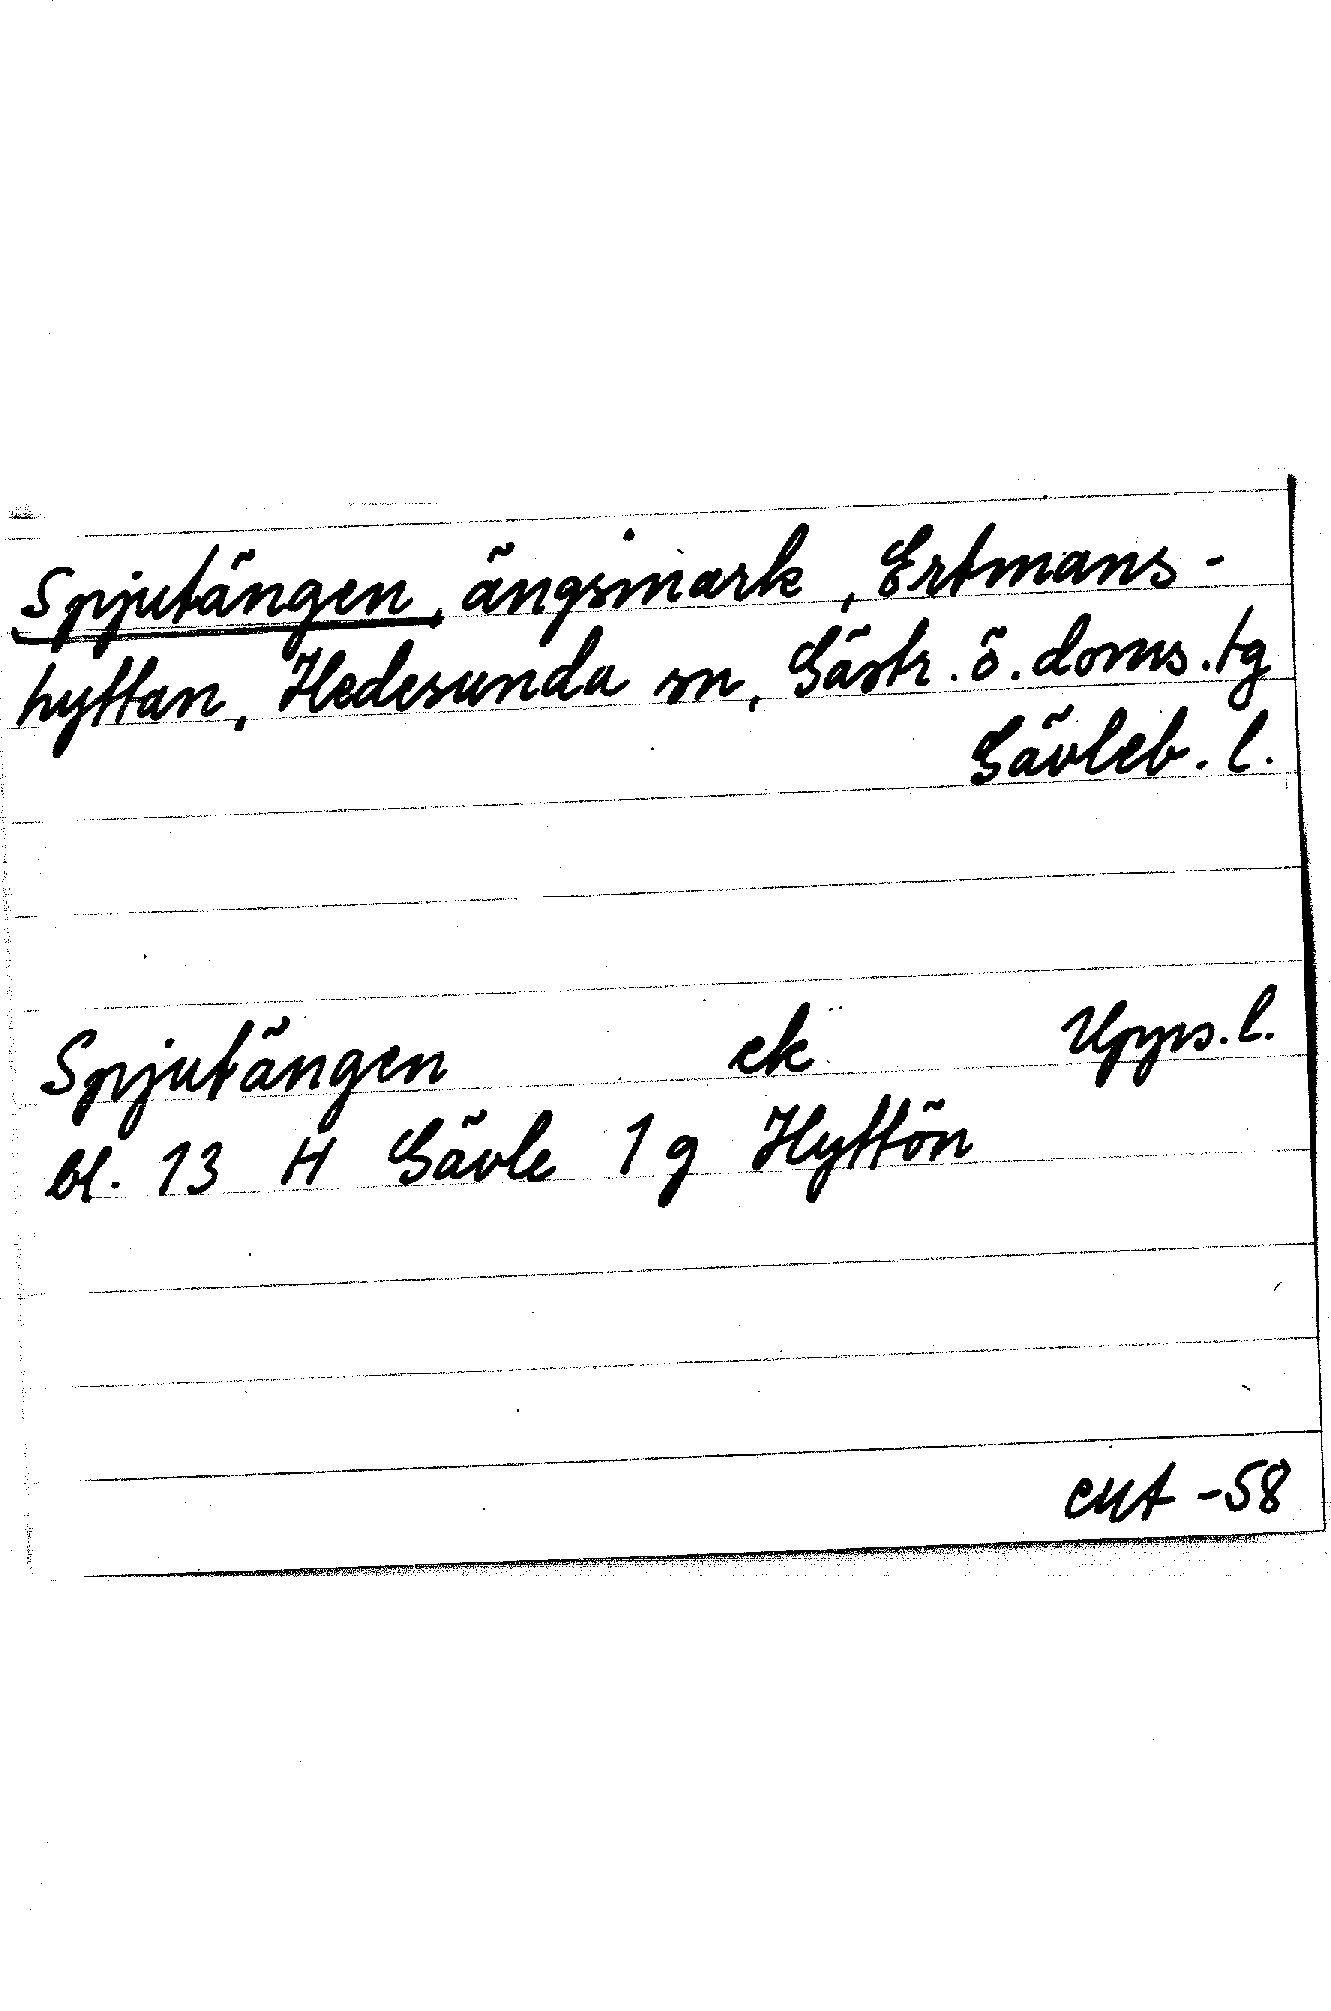 Spjutängen, ängsmark, Ertmans-
hyttan, Hedesunda sn, Gästr. ö. doms. tg
Gävleb. l.
Spjutängen ek Upps. l.
bl. 13 H Gävle 1 g Hyttön
-58